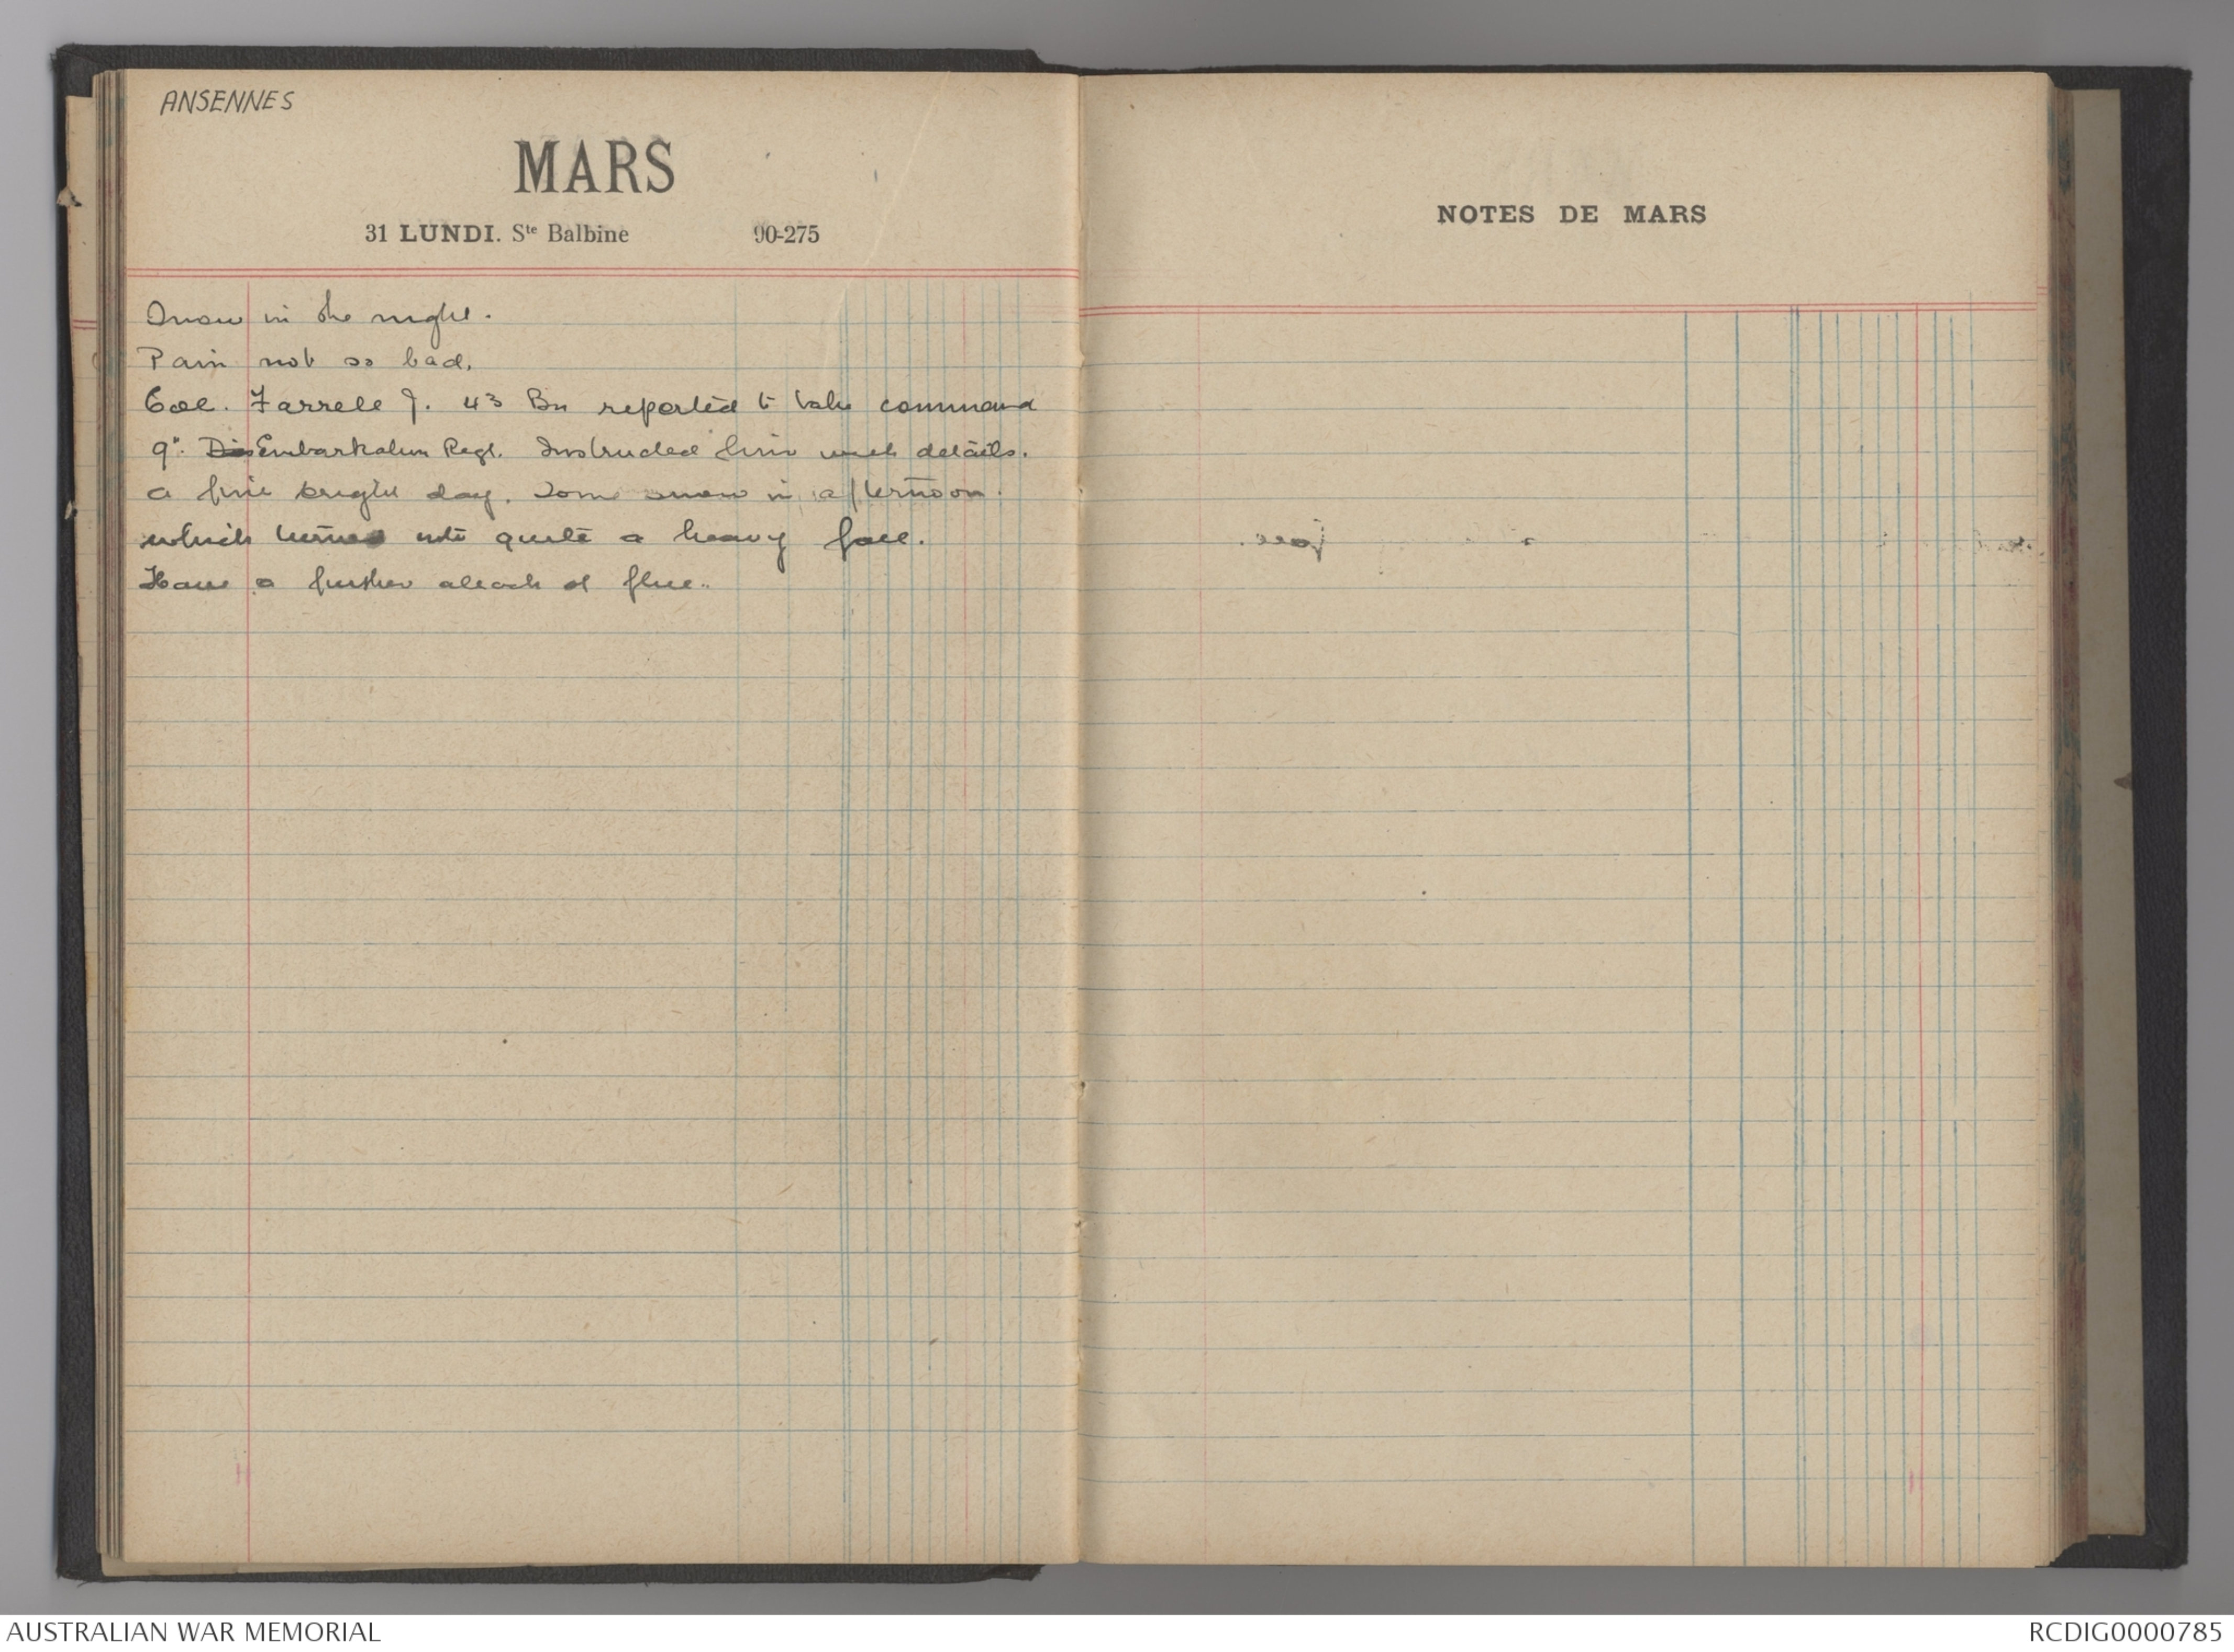 ANSENNES
MARS
31 LUNDI. Ste Balbine 90-275
Snow in the night.
Pain not so bad.
Col. Farrell J. 43 Bn reported to take command
9". Dis Embarkation Regt. Instructed him with details.
a fine bright day. Some snow in afternoon.
which turned into quite a heavy fall.
Have a further attack of flue.
NOTES DE MARS
AUSTRALIAN WAR MEMORIAL
RCDIG0000785